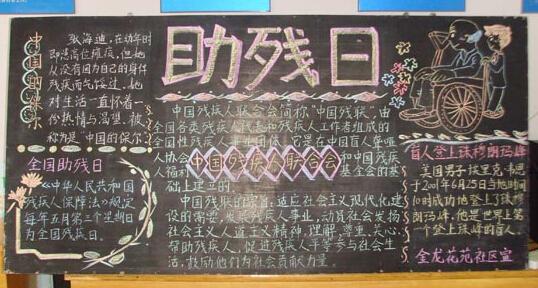 助残日
中国的保尔
张海迪,在幼年时
即患高位瘫痪,但她
从没有因为自己的身体
残疾而气馁过,她
对生活一直怀着一
份热情与渴望,被
称为是“中国的保尔”
全国助残日
《中华人民共和国
残疾人保障法》规定
每年五月第三个星期日
为全国残疾日。
中国残疾人联合会简称“中国残联”,由
全国各类残疾人代表和残疾人工作者组成的
全国性残疾人事业团体,它是在中国盲人聋哑
人协会
和中国残疾
中国残疾人联合会
人福利
基金会的基
础上建立的。
中国残联的宗旨:适应社会主义现代化建
设的需要,发展残疾人事业,动员社会发扬
社会主义人道主义精神,理解、尊重、关心、
帮助残疾人,促进残疾人平等参与社会生
活,鼓励他们为社会贡献力量。
盲人登上珠穆朗玛峰
美国男子埃里克·韦恩
于2001年6月25日当地时间
10时成功地登上了珠穆
朗玛峰,他是世界上第
一个登上珠峰的盲人。
金龙花苑社区宣